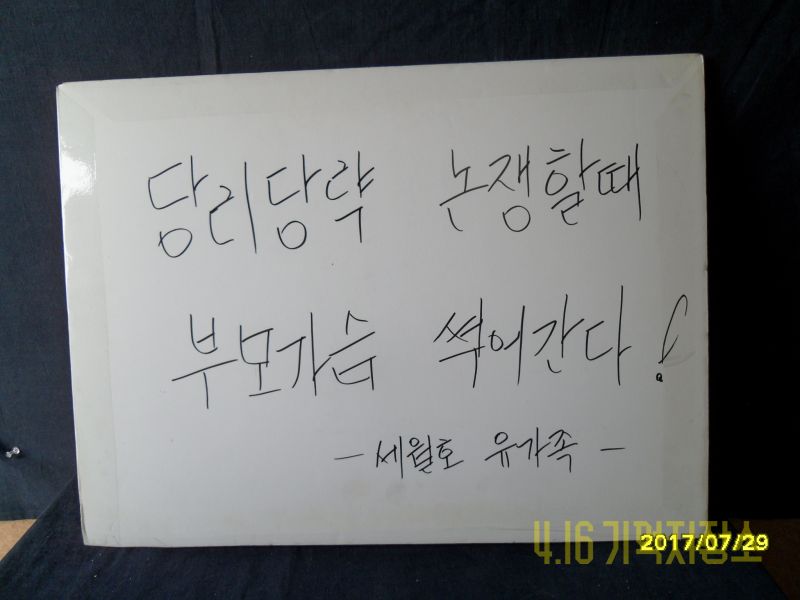 당리당략 논쟁할때
부모가슴 썩어간다!
- 세월호 유가족 -
4.16 기억저장소
2017/07/29